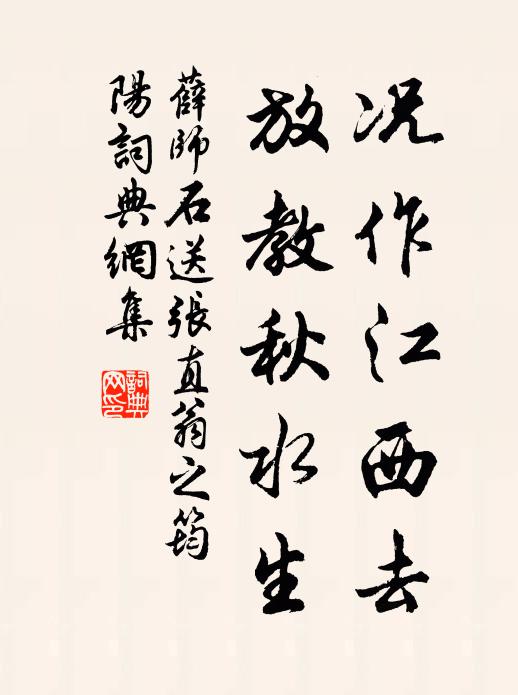 况作江西去
放教秋水生
薛師石送張直翁之筠
陽詞典網集
詞典
网印